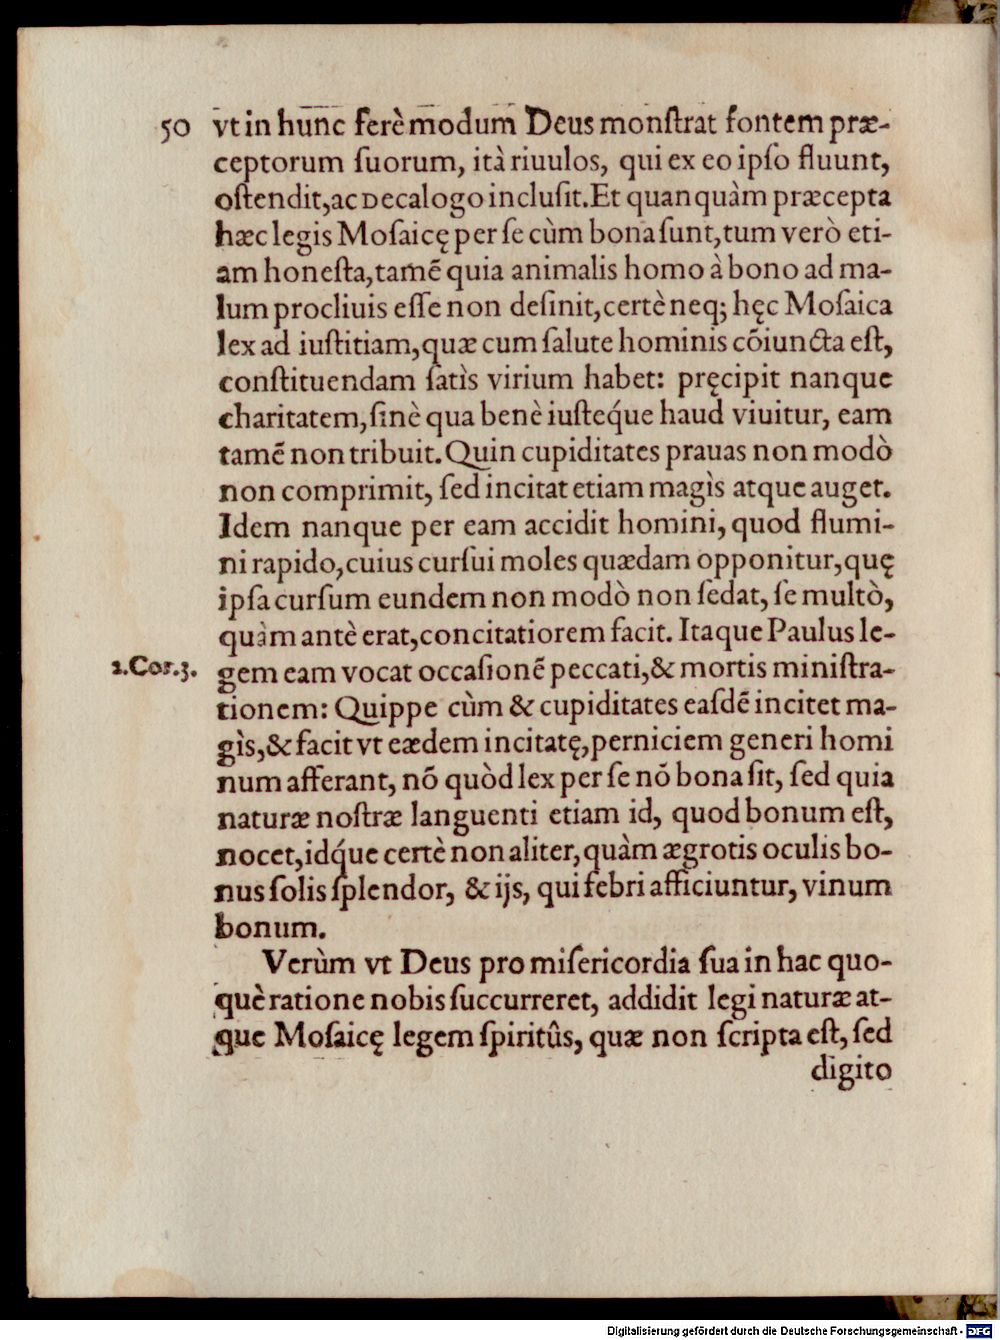 50 vt in hunc ferè modum Deus monſtrat fontem præ-
ceptorum ſuorum, ità riuulos, qui ex eo ipſo fluunt,
oſtendit, ac Decalogo incluſit. Et quanquàm præcepta
hæc legis Moſaicę per ſe cùm bona ſunt, tum verò eti-
am honeſta, tamẽ quia animalis homo à bono ad ma-
lum procliuis eſſe non deſinit, certè neq; hęc Moſaica
lex ad iuſtitiam, quæ cum ſalute hominis cõiuncta eſt,
conſtituendam ſatìs virium habet: pręcipit nanque
charitatem, ſinè qua benè iuſteq́ue haud viuitur, eam
tamẽ non tribuit. Quin cupiditates prauas non modò
non comprimit, ſed incitat etiam magìs atque auget.
Idem nanque per eam accidit homini, quod flumi-
ni rapido, cuius curſui moles quædam opponitur, quę
ipſa curſum eundem non modò non ſedat, ſe multò,
quàm antè erat, concitatiorem facit. Itaque Paulus le-
2.Cor.3. gem eam vocat occaſionẽ peccati, & mortis miniſtra-
tionem: Quippe cùm & cupiditates eaſdẽ incitet ma-
gìs, & facit vt eædem incitatę, perniciem generi homi
num afferant, nõ quòd lex per ſe nõ bona ſit, ſed quia
naturæ noſtræ languenti etiam id, quod bonum eſt,
nocet, idq́ue certè non aliter, quàm ægrotis oculis bo-
nus ſolis ſplendor, & ijs, qui febri afficiuntur, vinum
bonum.
Verùm vt Deus pro miſericordia ſua in hac quo-
què ratione nobis ſuccurreret, addidit legi naturæ at-
que Moſaicę legem ſpiritûs, quæ non ſcripta eſt, ſed
digito
Digitalisierung gefördert durch die Deutsche Forschungsgemeinschaft - DFG